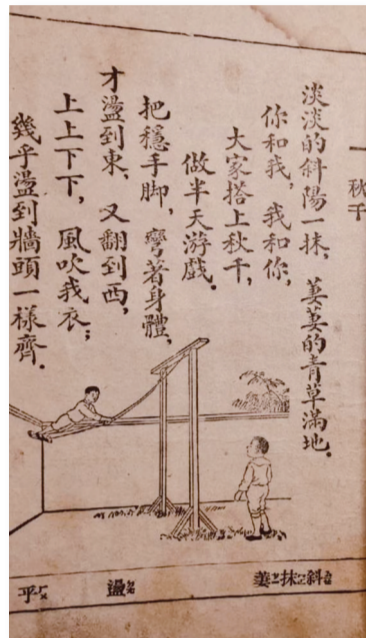 一 秋千
淡淡的斜陽一抹，萋萋的青草滿地．
你和我，我和你，
大家搭上秋千，
做半天游戲．
把穩手脚，彎著身體，
才盪到東，又翻到西，
上上下下，風吹我衣；
幾乎盪到牆頭一樣齊．
斜 抹 萋
盪
乎